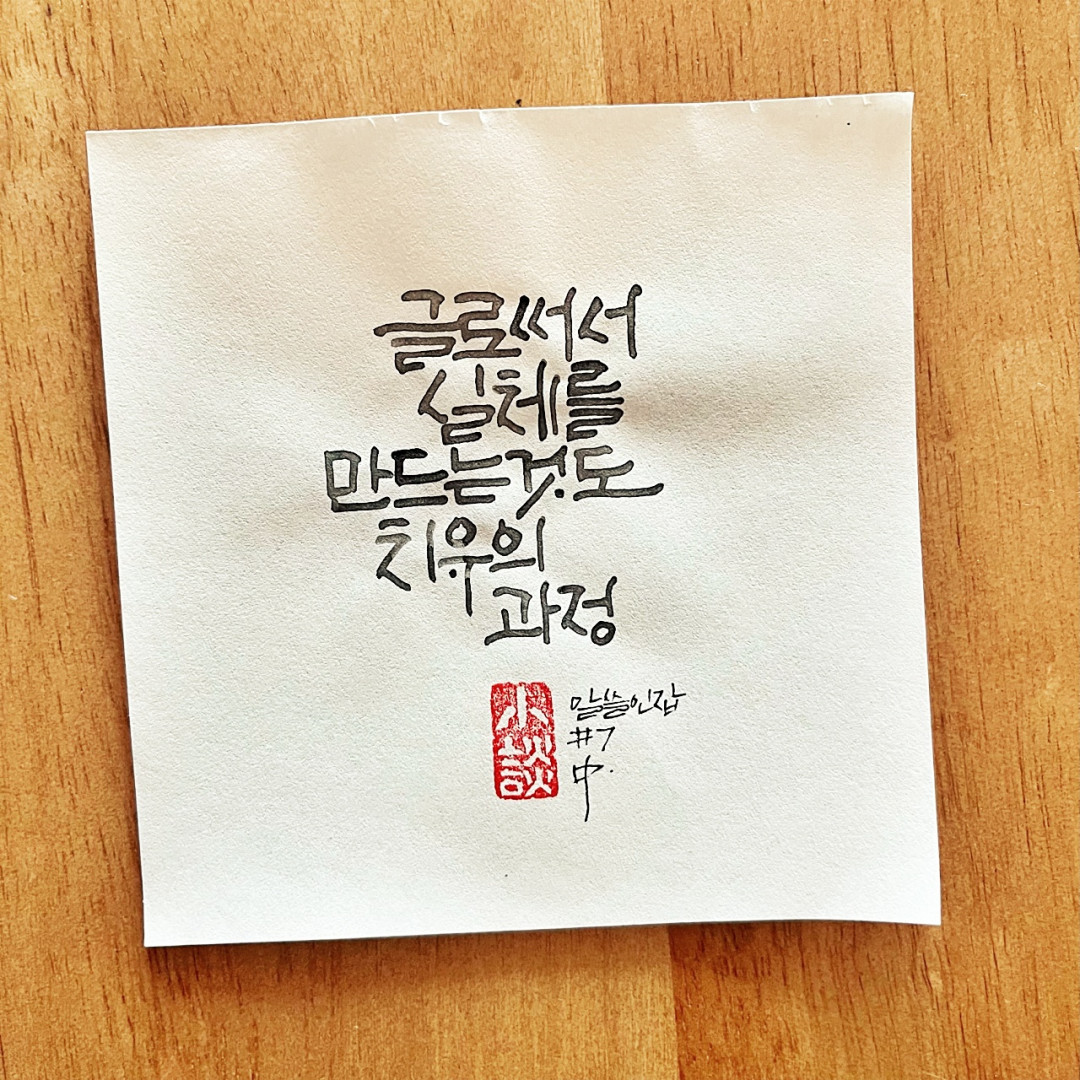 글로써서
실체를
만드는것도
치우의
과정
小談
말쓸인잡
#7
中.